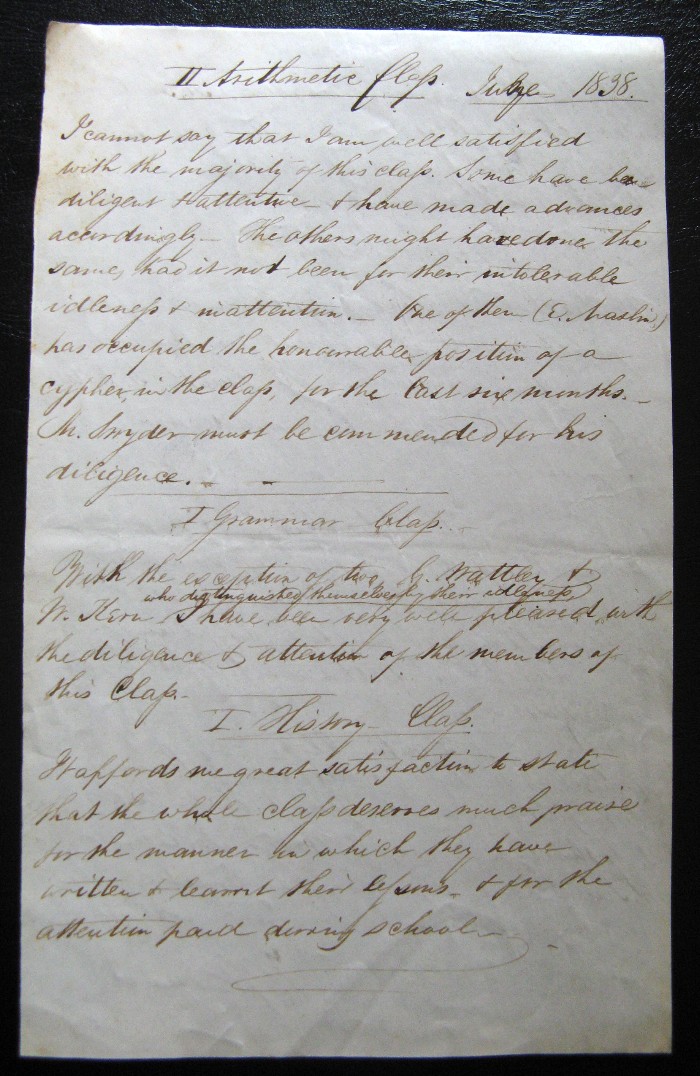 II Arithmetic Class. July 1838.
I cannot say that I am well satisfied
with the majority of this class. Some have been
diligent & attentive & have made advances
accordingly. The others might have done the
same, had it not been for their intolerable
idleness & inattention. — One of them (E. Maslin)
has occupied the honourable position of a
cypher in the class, for the last six months. —
M. Snyder must be commended for his
diligence.
I Grammar Class.
With the exception of two, G. Wattles &
who distinguished themselves by their idleness
W. Kern I have been very well pleased with
the diligence & attention of the members of
this Class.
I. History Class.
It affords me great satisfaction to state
that the whole class deserves much praise
for the manner in which they have
written & learnt their lessons & for the
attention paid during school